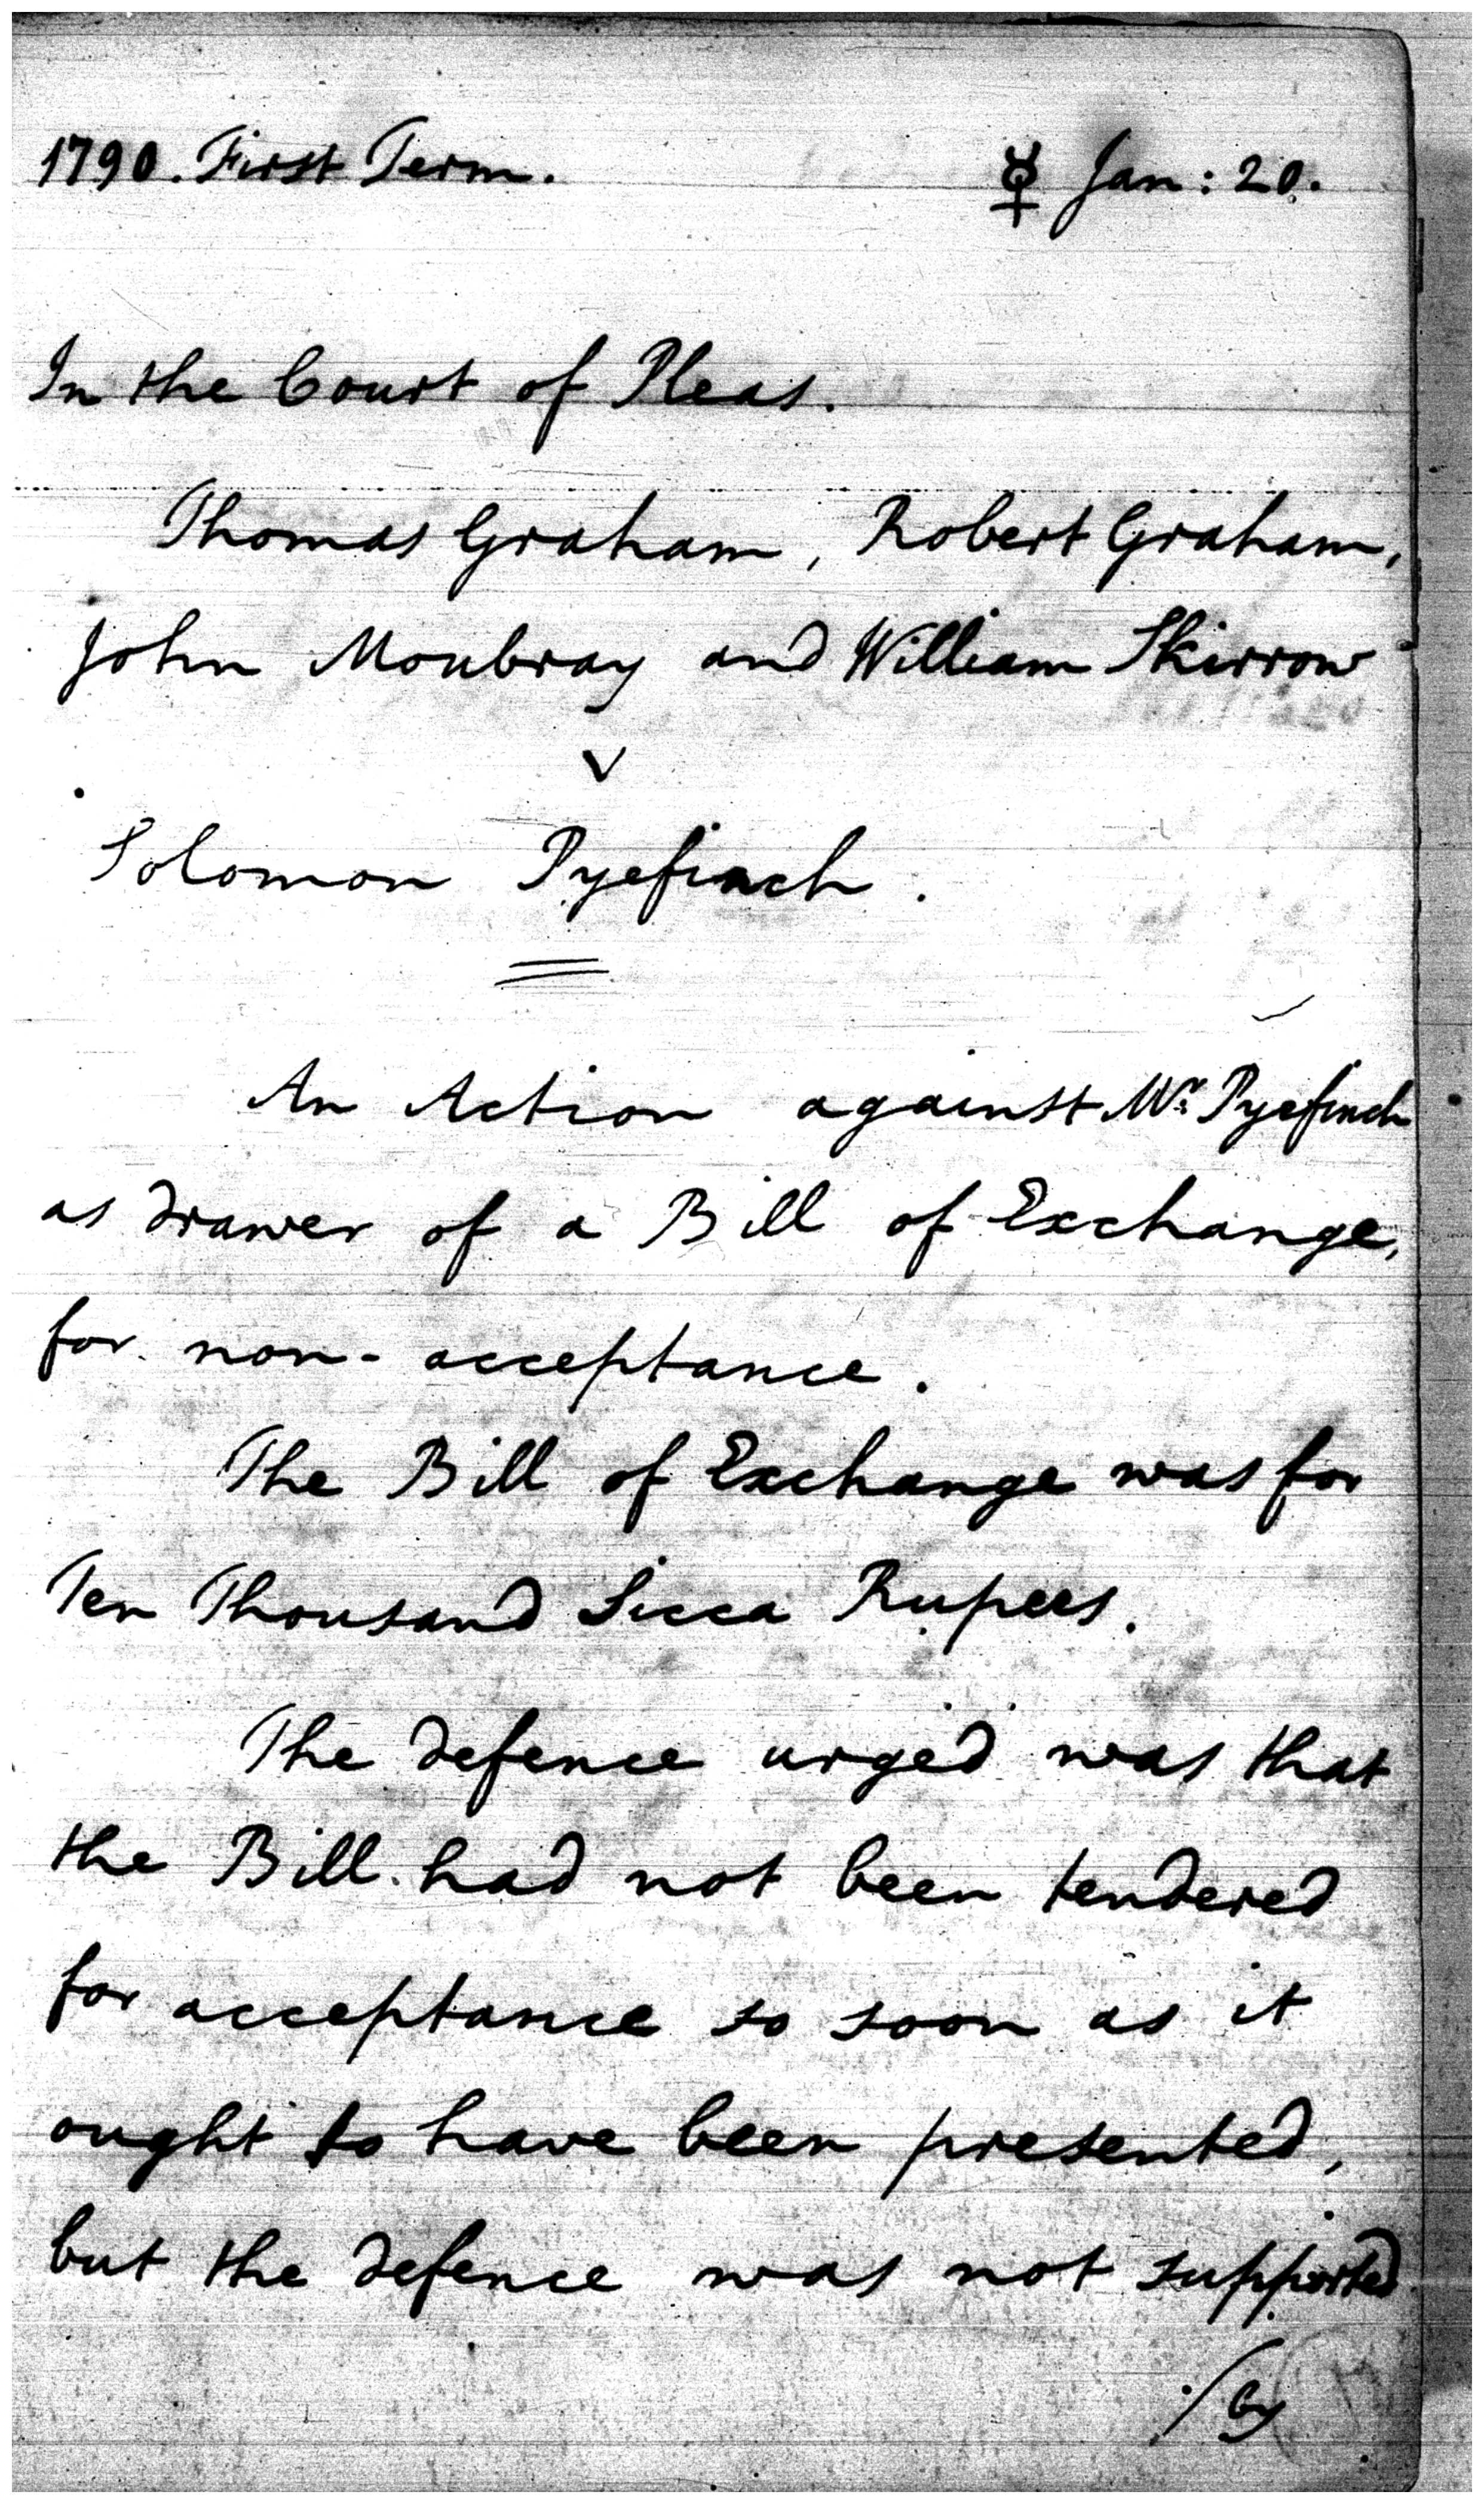 1790. First Term. ☿ Jan: 20.
In the Court of Pleas.
Thomas Graham, Robert Graham,
John Moubray and William Skirrow
v
Solomon Pyefinch.
An Action against Mr. Pyefinch
as drawer of a Bill of Exchange,
for non-acceptance.
The Bill of Exchange was for
Ten Thousand Sicca Rupees.
The defence urged was that
the Bill had not been tendered
for acceptance so soon as it
ought to have been presented,
but the defence was not supported
/by